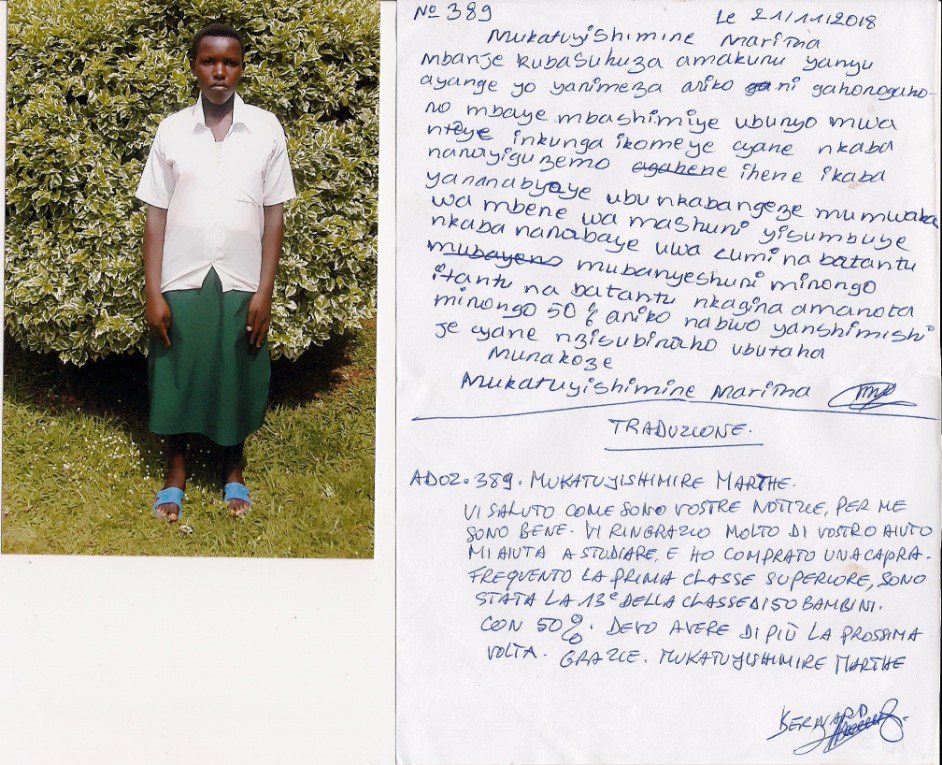 No 389 Le 21/11/2018
Mukatuyishimine Marima
mbanje kubasuhuza amakuru yanyu
ayange yo yanimeza ariko ni gahonogaho-
no mbaye mbashimiye ubunyo mwa
nteye inkunga ikomeye cyane nkaba
nanayiguzemo ihene ikaba
yananabyaye ubu nkabangeze mumwaka
wa mbene wa mashuni yisumbuye
nkaba nanabaye uwa cumi na batantu
mubayeno mubanyeshuni minongo
itantu na batantu nkagina amanota
minongo 50 % ariko nabwo yanshimishi
je cyane nzisubinaho ubutaha
Munakoze
Mukatuyishimine Marima
TRADUZIONE.
ADOZ. 389. MUKATUYISHIMIRE MARTHE.
VI SALUTO COME SONO VOSTRE NOTIZIE, PER ME
SONO BENE. VI RINGRAZIO MOLTO DI VOSTRO AIUTO
MI AIUTA A STUDIARE, E HO COMPRATO UNA CAPRA.
FREQUENTO LA PRIMA CLASSE SUPERIORE, SONO
STATA LA 13e DELLA CLASSE DI 50 BAMBINI.
CON 50%. DEVO AVERE DI PIÙ LA PROSSIMA
VOLTA. GRAZIE. MUKATUYISHIMIRE MARTHE
BERNARD